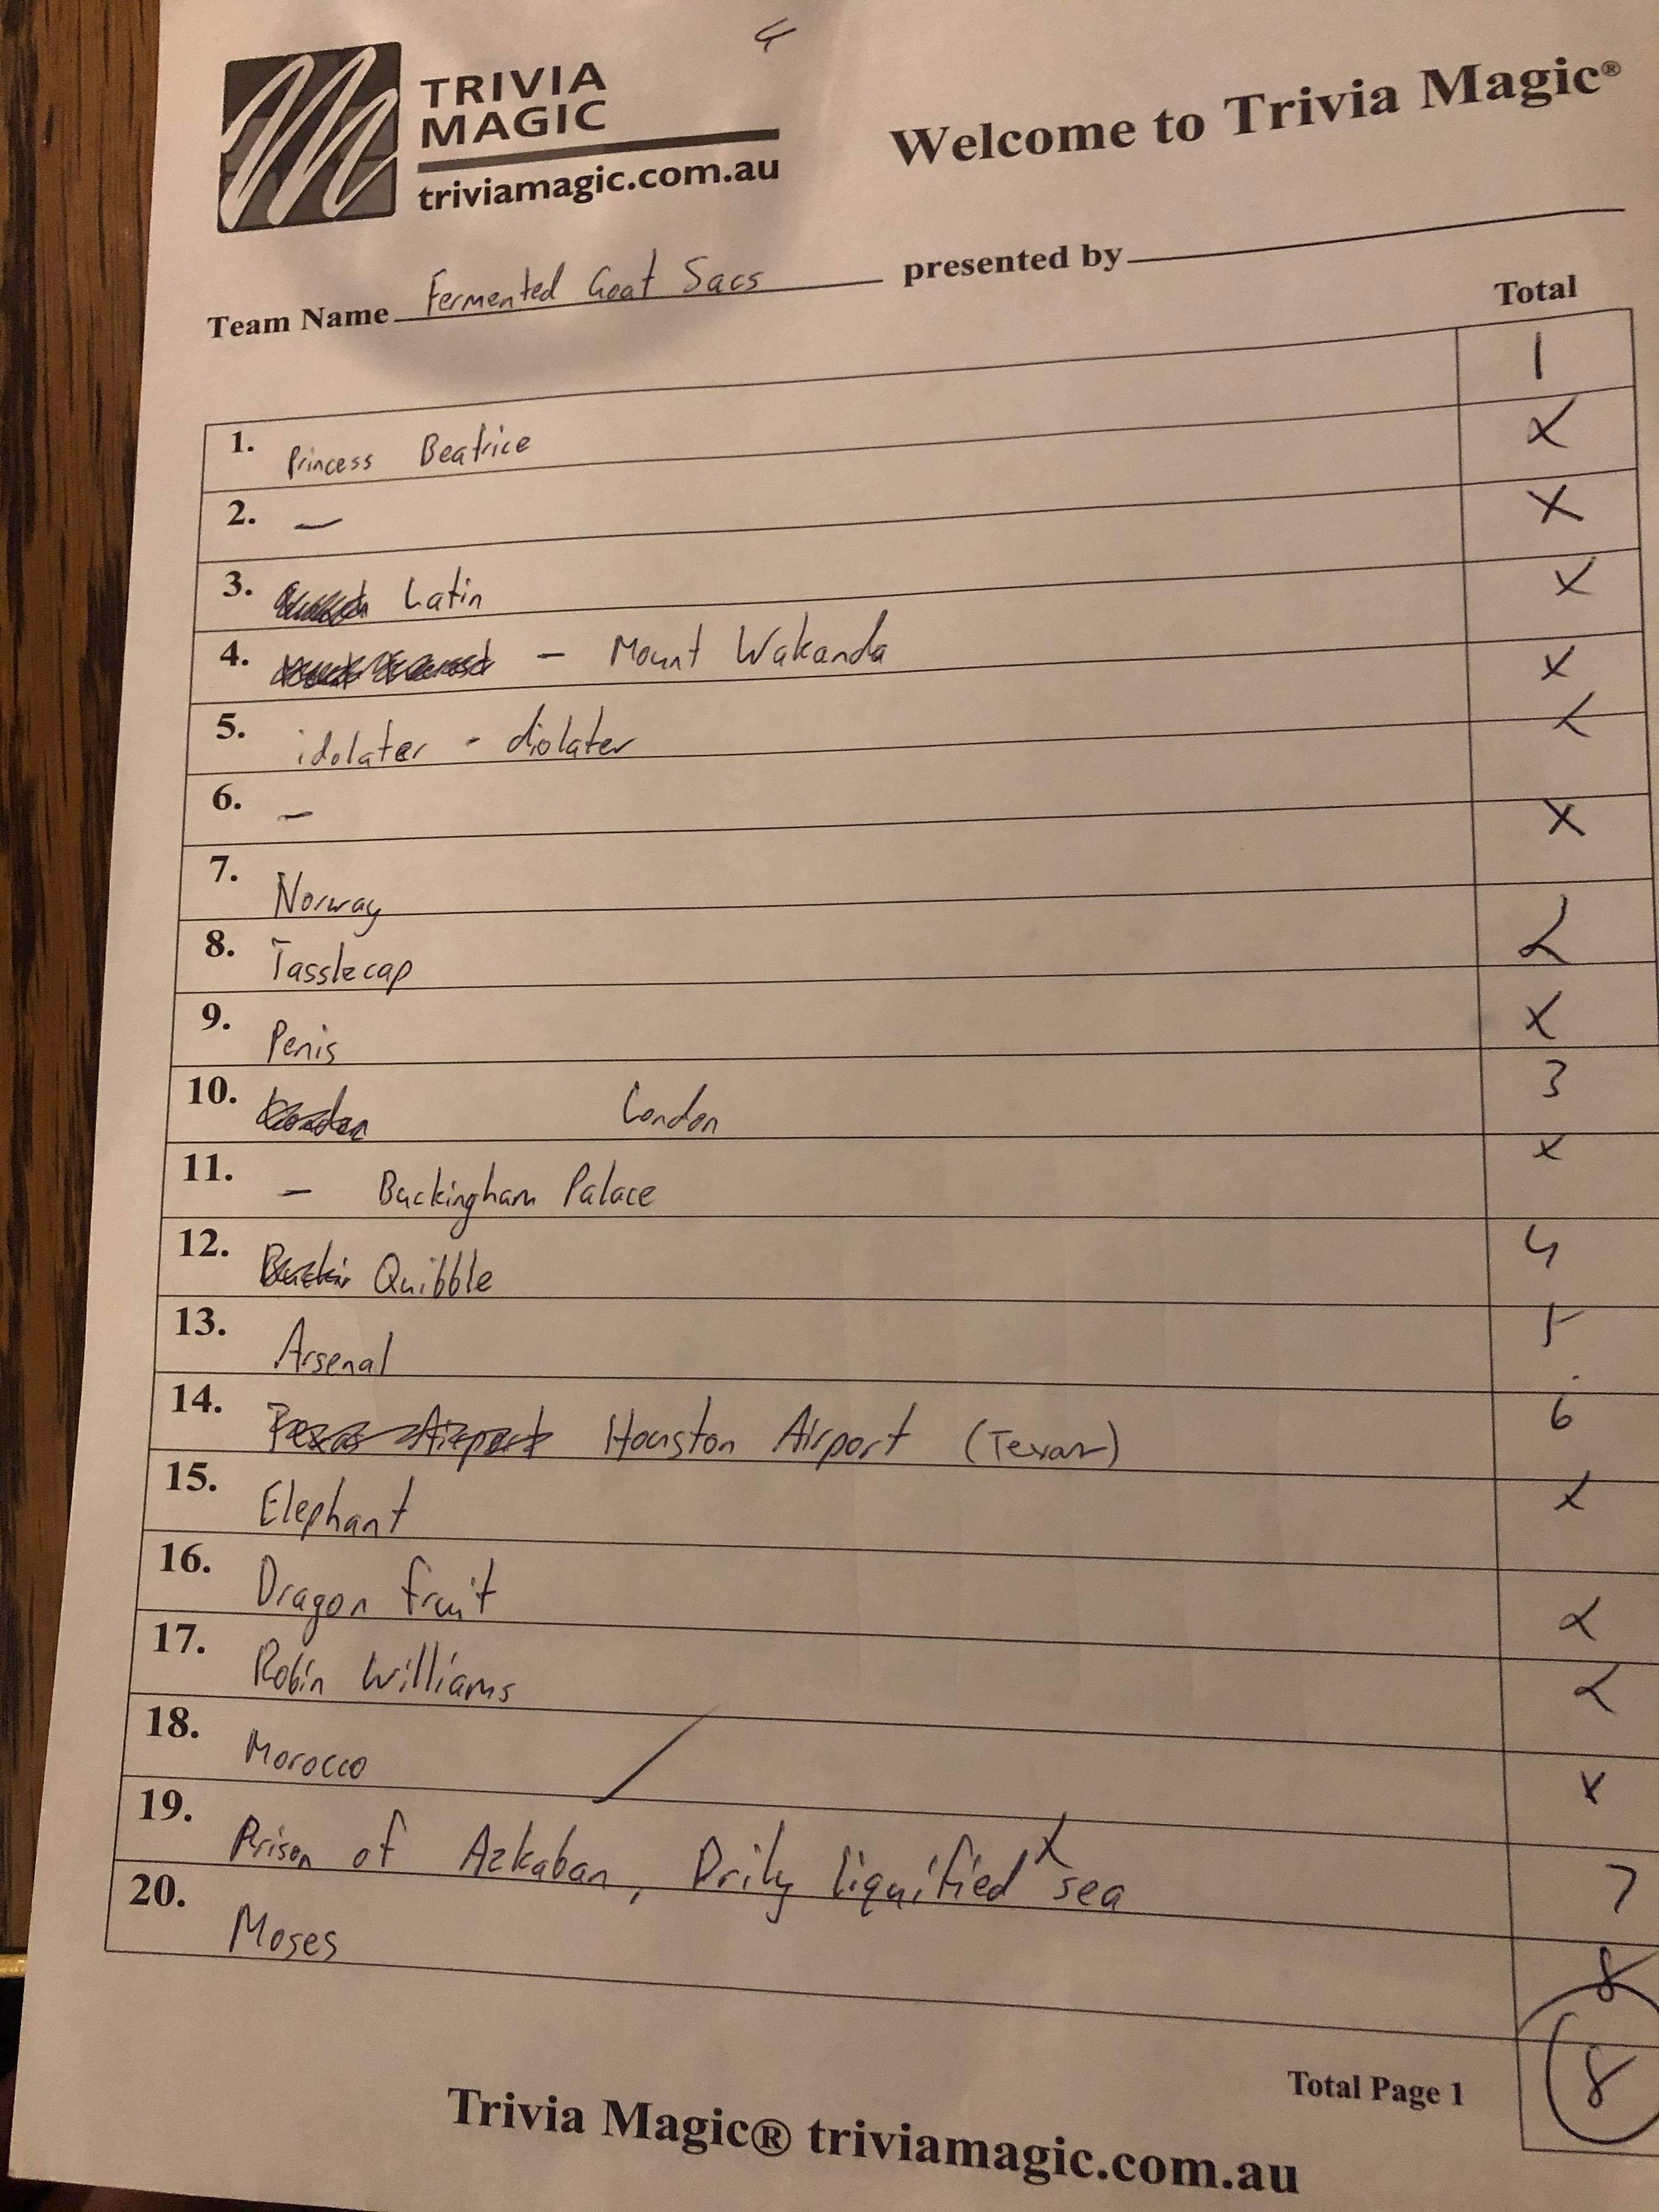 4
TRIVIA
MAGIC
triviamagic.com.au
Welcome to Trivia Magic®
Team Name Fermented Goat Sacs presented by
Total
1. Princess Beatrice 1
2. — X
3. Latin X
4. — Mount Wakanda X
5. idolater - diolater X
6. — X
7. Norway X
8. Tasslecap 2
9. Penis X
10. London 3
11. — Buckingham Palace X
12. Quibble 4
13. Arsenal 5
14. Houston Airport (Texas) 6
15. Elephant X
16. Dragon fruit X
17. Robin Williams X
18. Morocco X
19. Prison of Azkaban, Drily liquified sea X 7
20. Moses 8
Total Page 1 8
Trivia Magic® triviamagic.com.au